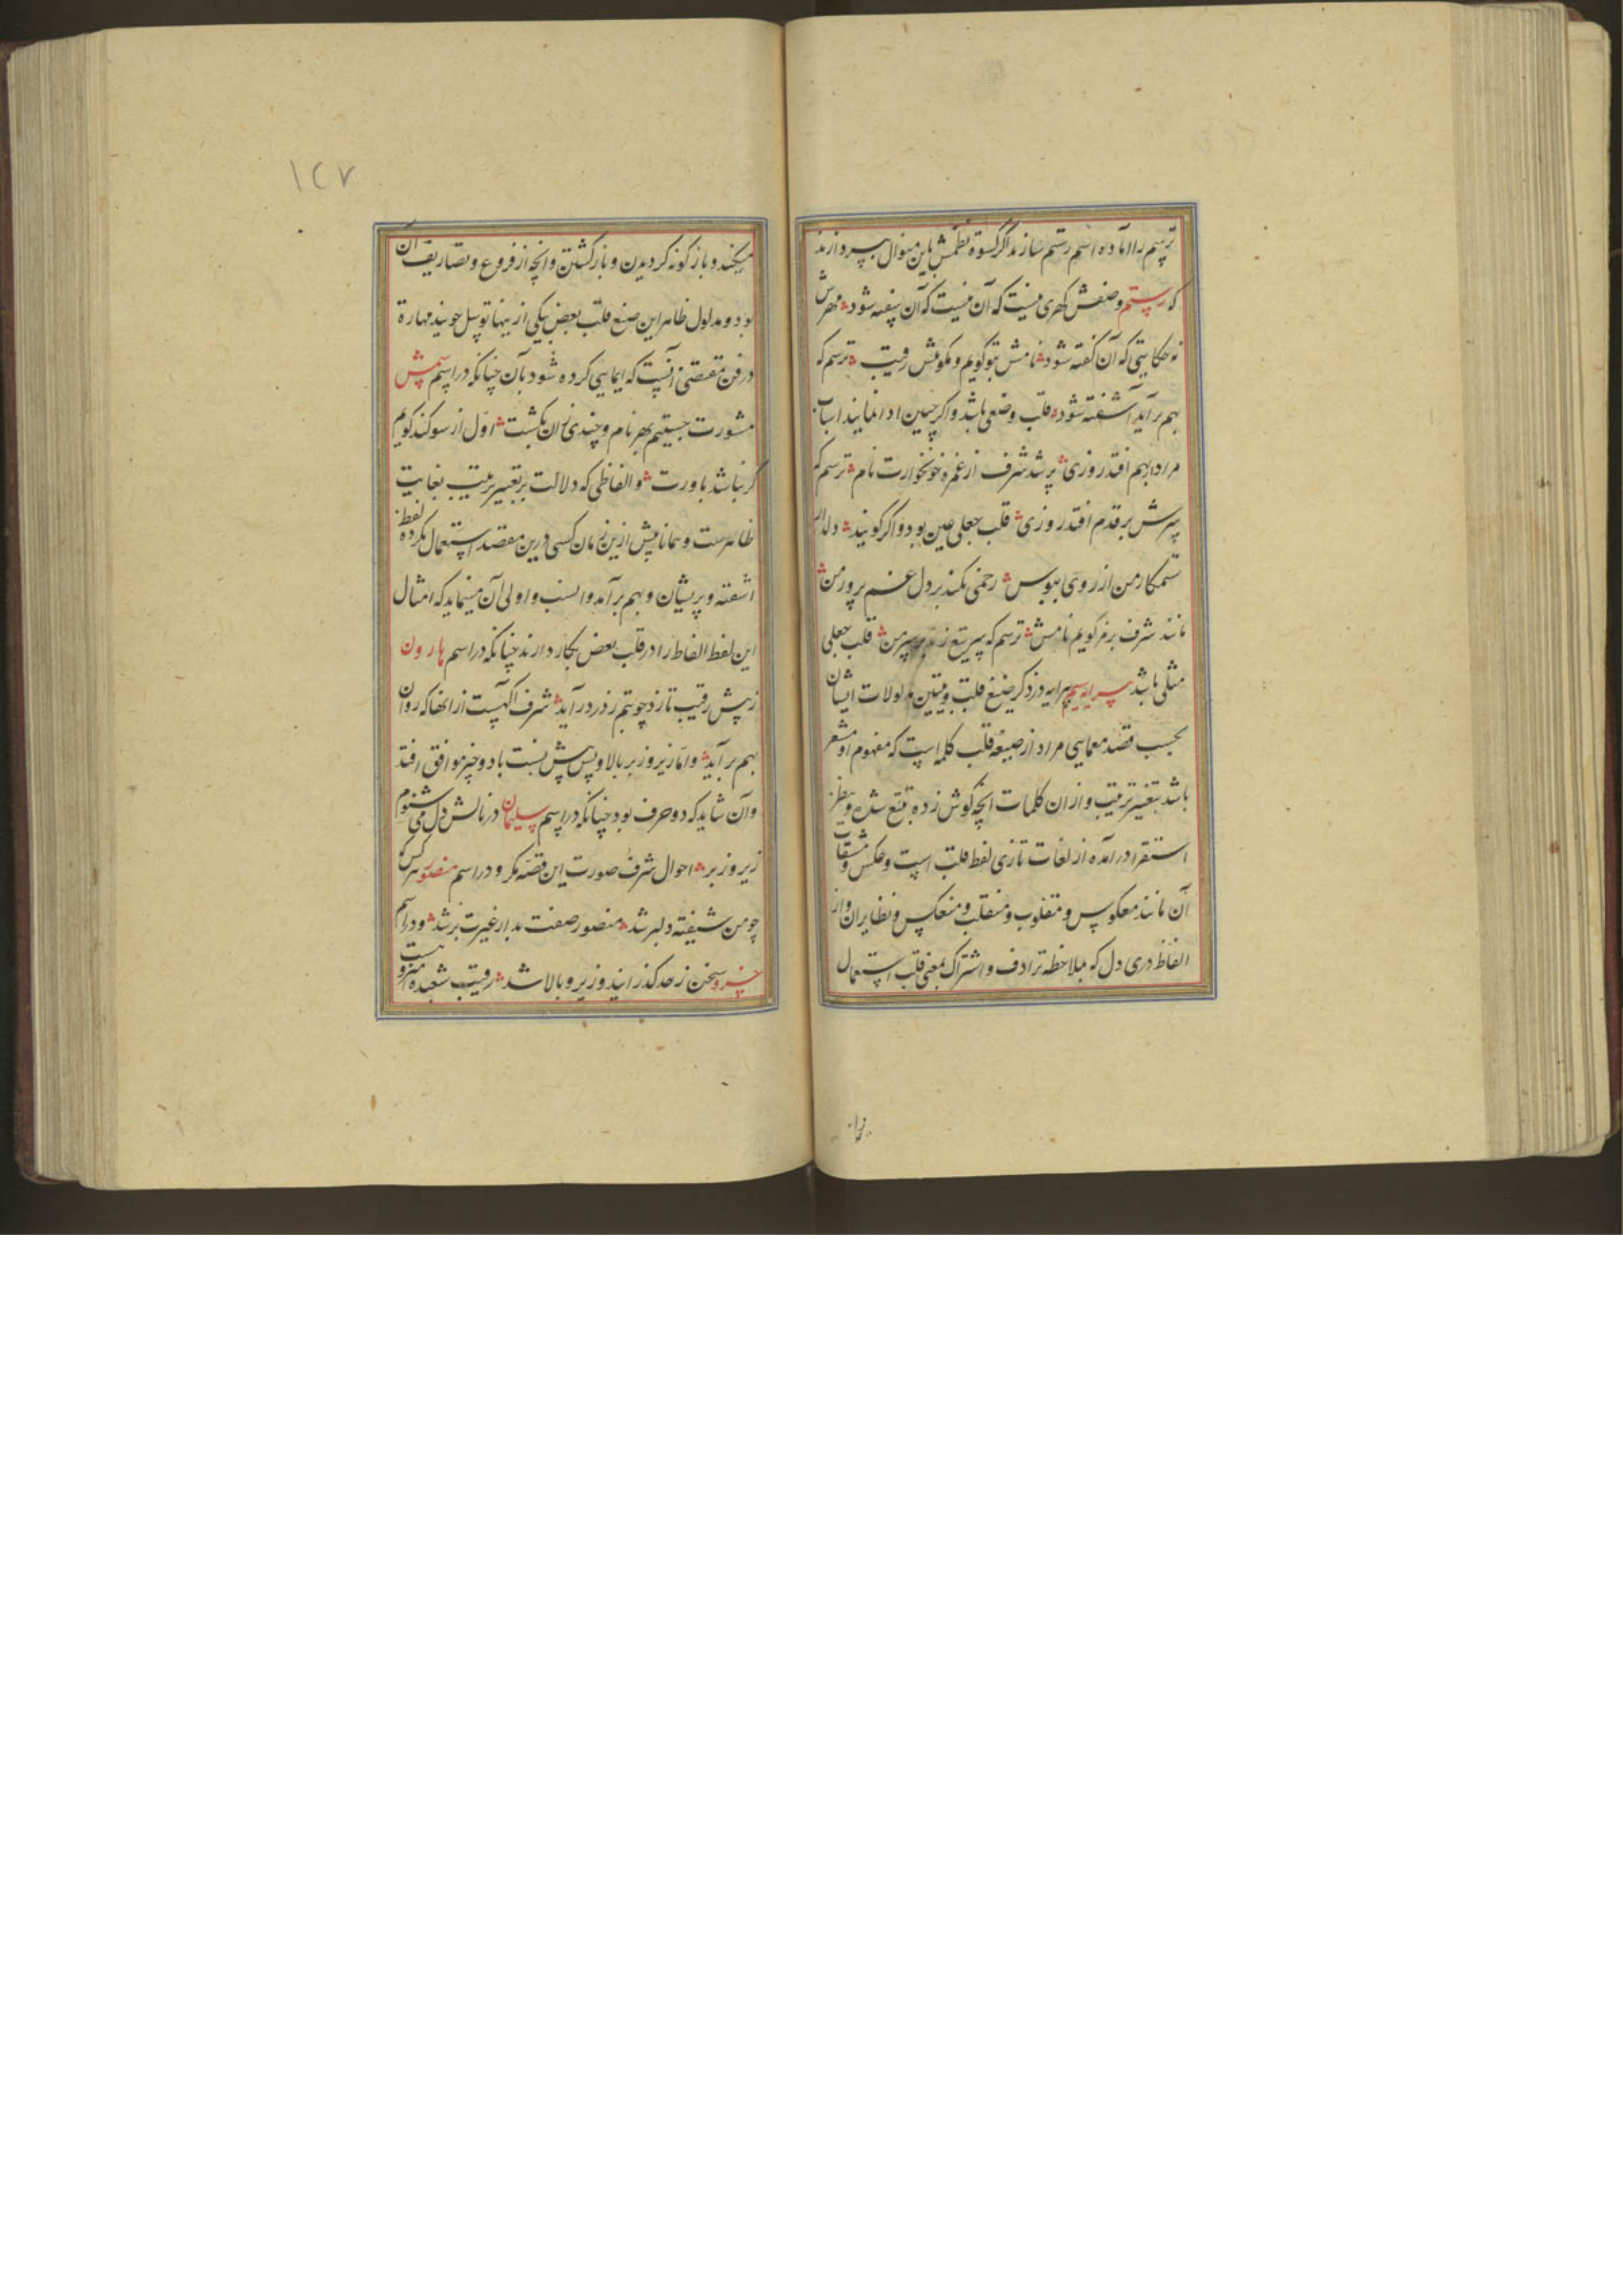 ترسم را اماده اسم رستم سازند اگر کسوة نظمش باین منوال بپردازند
که رستم وصفش کهری نیست که آن نیست که آن سفته شود مهرش
نه حکایتی که آن گفته شود نامش بتو گویم و مگویش رقیب ترسم که
بهم برآید آشفته شود قلب وضعی باشد واگر چنین ادا نمایند اسباب
مراد بهم افتد روزی پر شد شرف از غمزه خونخوارت نام ترسم که
سرش بر قدم افتد روزی قلب جعلی عین بود و اگر گویند دلدار
ستمکار من از روی ببوس رحمی نکند بر دل غم پرور من
مانند شرف برمز گویم نامش ترسم که سر تیغ زند بر سر من قلب جعلی
مثلی باشد پیرایه سیم پیرایه در ذکر صیغ قلب و تبیین مدلولات ایشان
بحسب قصد معمایی مراد از صیغه قلب کلمه ایست که مفهوم او مشعر
باشد بتغییر ترتیب و از ان کلمات انچه گوش زده تتبع شده و بنظر
استقرا درآمده از لغات تازی لفظ قلب است وعکس و مشتقات
آن مانند معکوس و مقلوب و منقلب و منعکس و نظایر ان و از
الفاظ دری دل که بملاحظه ترادف و اشتراک بمعنی قلب استعمال
۱۲۷
میکنند و باز کونه کردیدن و باز کشتن و انچه از فروع و تصاریف آن
بود و مدلول ظاهر این صیغ قلب بعض بیکی از ینها توسل جویند مهارة
در فن مقتضی آنست که ایمایی کرده شود بآن چنانکه در اسم شمس
مشورت جستیم بهر نام و چندی زان نکشت اوّل از سوکند کویم
گر نباشد باورت و الفاظی که دلالت بر تغییر ترتیب بغایت
ظاهرست و همانا پیش ازین زمان کسی درین مقصد استعمال نکرده لفظ
اشفته و پریشان و بهم برآمد و انسب و اولی آن مینماید که امثال
این لفظ الفاظ را در قلب بعض بکار دارند چنانکه در اسم هارون
زپیش رقیب تازد چو بتم زدر درآید شرف آگهست از انها که روان
بهم برآید و امّا زیر و زبر بالا و پس پیش نسبت با دو چیز موافق افتد
وآن شاید که دو حرف بود چنانکه در اسم سلیمان در نالش دل می شنوم
زیر و زبر احوال شرف صورت این قصّه نکر و در اسم منصور هرکس که
چو من شیفته دلبر شد منصور صفت بدار غیرت بر شد و در اسم
خسرو سخن ز حد کذرانید و زیر و بالا شد رقیب شعبده
زا